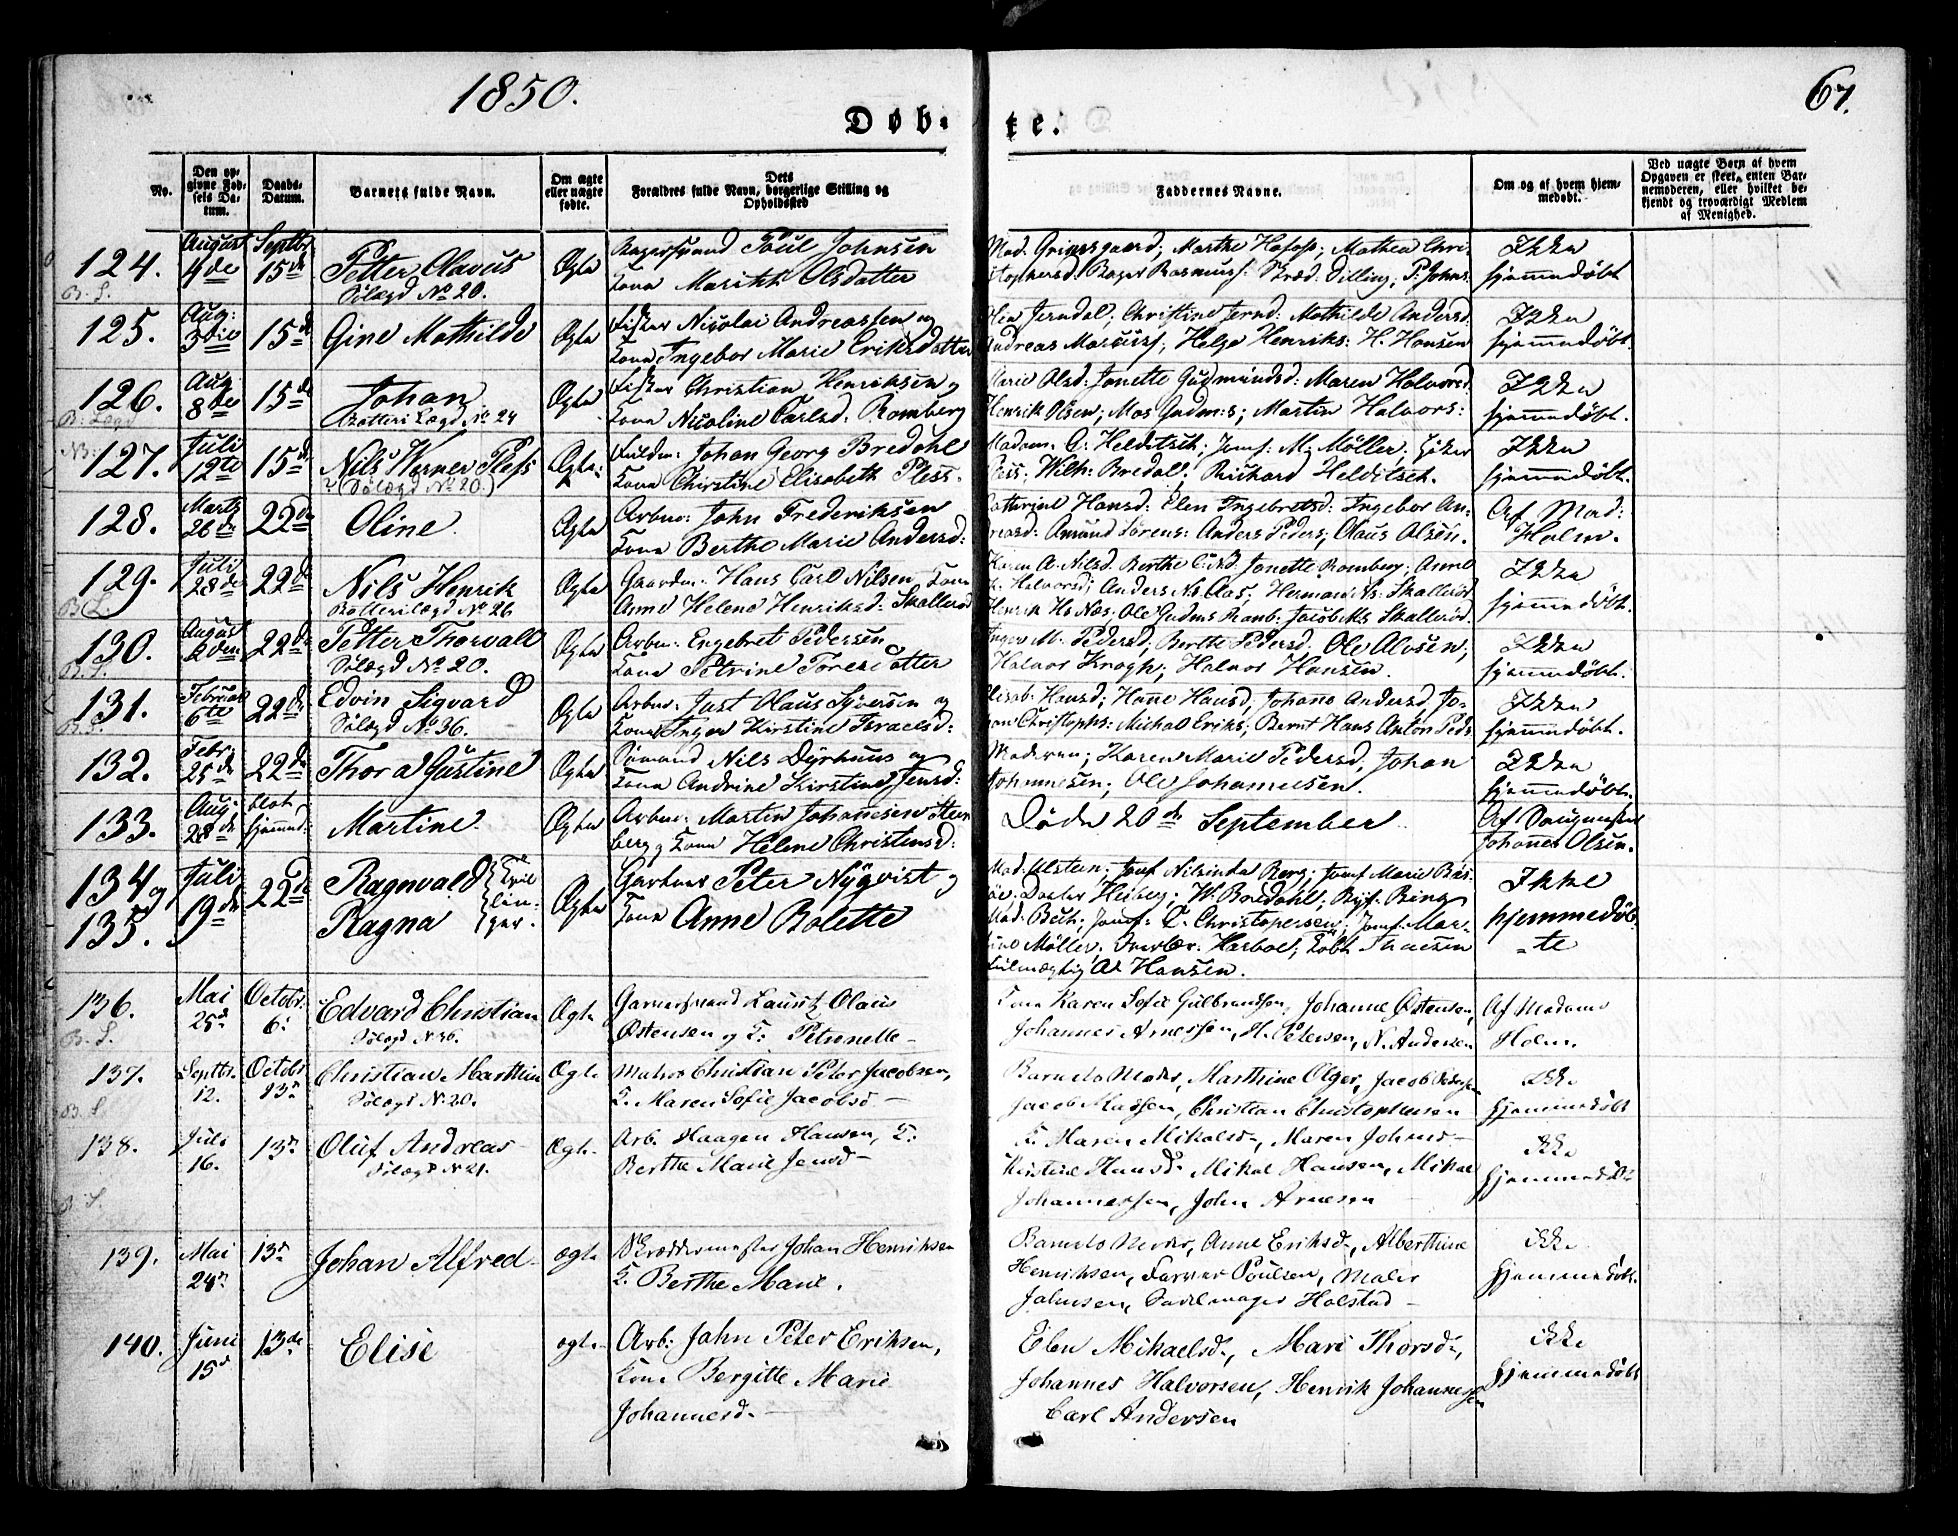 1850.
67.
Døb- te.
No.
Den op-
givne Fød-
sels Da-
tum.
Daabs-
Datum.
Barnets fulde Navn.
Om ægte
eller uægte
fødte.
Dets
Forældres fulde Navn, borgerlige Stilling og
Opholdssted
Faddernes Navne.
Om og af hvem hjem-
medøbt.
Ved uægte Børn af hvem
Opgaven er skeet, enten Bar-
nemoderen, eller hvilket be-
kjendt og troværdigt Medlem
af Menighed.
124.
B. L.
August
4de
Septbr
15de
Petter Olavus
Sølægd No 20.
Ægte
Paul Johnsen
Kone Marithe Olsdatter
Mad. Grimsgaard; Marthe Hafos; Mathea Chri-
stophersd. Roger Rasmuss: Skræd. Dilling; P. Johns.
Ikke
hjemmedøbt
125.
Aug:
3die
15de
Gine Mathilde
Ægte
Fisker Nicolai Andreassen og
Kone Ingebor Marie Eriksdatter
Jerndal; Christine Jernd: Mathilde Andersd.
Andreas Marcuss; Helge Henriks: H. Hansen
Ikke
hjemmedøbt.
126.
B. Lægd
Aug
8de
15de
Johan
Rotteri Lægd No 24
Ægte
Fisker Christian Henriksen og
Kone Nicoline Carlsd: Romberg
Marie Olsd: Jonette Gudmundsd: Maren Halvorsd.
Henrik Olsen; Mos Gudm:s; Martin Halvors:
Ikke
hjemmedøbt.
NB:
127.
Juli
12te
15de
Nils Werner Pless
(Sølægd No 20.)
Ægte.
Johan Georg Bredahl
Kone Christine Elisabeth Pless.
Madam. A. Helditsch; Jomf. M. Möller;
Pless; Wilh: Bredal; Richard Helditsch.
Ikke
hjemmedøbt.
128.
Marts
26de
22de
Oline
Ægte
Arbm: John Frederiksen
Kone Berthe Marie Andersd:
Cathrine Hansd: Elen Ingebretsd: Ingebor An-
dreasd: Amund Sörens: Anders Peders; Olaus Olsen.
Af Mad:
Holm.
129.
B. L.
Juli
28de
22de
Nils Henrik
Rotterilægd No 26
Ægte
Gaardm. Hans Carl Nilsen, Kone
Anne Helene Henriksd: Skallerød
Karen A. Nilsd. Berthe Jonette Romberg; Anne
K. Halvorsd; Anders Ns Aas; Herman Ns: Skallerød
Henrik Hs Næs; Ole Gudms Romb: Jacob Ms Skallerød.
Ikke
hjemmedøbt.
130.
B. L.
August
2den
22de
Petter Thorvald
Sølægd No 20.
Ægte
Arbm: Engebret Pedersen
Kone Petrine Toresdatter
Inger M. Pedersd, Berthe Pedersd: Ole Alvsen;
Halvor Krogh; Halvor Hansen.
Ikke
hjemmedøbt.
131.
B. L.
Februar
6te
22de
Edvin Sigvard
Sølægd No 36.
Ægte
Arbm: Just Olaus Syversen og
Kone Inger Kirstine Israelsd:
Elisab: Hansd; Hanne Hansd, Johanne Andersd, Jo-
han Christophs: Michal Eriks; Bernt Hans Anton Peds
Ikke
hjemmedøbt.
132.
Febr:
25de
22de
Thora Justine
Ægte
Sømand Nils Dyrhuus og
Kone Andrine Kirstine Jensd:
Moderen; Karen Marie Pedersd, Johan
Johannesen; Ole Johannesen.
Ikke
hjemmedøbt.
133.
Aug:
28de
blot
hjemmed:
Martine
Ægte
Arbm: Martin Johannesen Steen
berg, Kone Helene Christensd:
Døde 20de September
Af
Johannes Olsen.
134 og
135.
Juli
19de
22de
Ragnvald
Ragna
Tvil
lin-
ger.
Ægte
Gartner Peter Nyqvist og
Kone Anne Bolette
Mad. Ulsten; Jomf Nilsinke Berg; Jomf Marie Rus
öe. Doctor Heiberg; W. Bredahl; Byf. Bing
Mad: Bech; Jomf: C. Christopersen; Jomf. Mar-
tine Möller. Harboe; Købt. Thaesen
fuldmægtig A. Hansen.
Ikke
hjemmedøb
-te
136.
B. L.
Mai
25d
Octobr.
6:
Edvard Christian
Sølægd N. 36.
Ægte
Lauritz Olaus
Østensen og K. Petrunelle -
Kone Karen Sofie Gulbrandsen, Johanne Østensen,
Johannes Arnessen, H. Petersen, N. Andersen
Af Madame
Holm.
137.
B. L.
Septbr.
12.
Octobr
13de
Christian Marthin
Sølægd N. 20.
Ægte
Maler Christian Peter Jacobsen,
K. Maren Sofie Jacobsd -
Barnets Moder, Marthine Olger, Jacob Pedersen
Jacob Madsen, Christian Christophersen
Ikke
hjemmedøbt
138.
B. L.
Juli
16.
13de
Oluf Andreas
Sølægd N 21.
Ægte.
Arb. Haagen Hansen, K.
Berthe Marie Jensd -
K. Maren Mikalsd., Maren Johnsd -
Kirstine Hansd. Mikal Hansen, Mikal
Johannessen, John Arnesen
Ikke
hjemmedøbt
139.
Mai
24de
13de
Johan Alfred
ægte
Skræddermester Johan Henriksen
K. Berthe Marie.
Barnets Moder, Anne Eriksd., Alberthine
Henriksen, Farver Poulsen, Maler
Johnsen, Sadelmager Holstad -
ikke
hjemmedøbt.
140.
Juni
15d
13de
Elise
ægte
Arb: John Peter Eriksen,
Kone Bergitte Marie
Johannesd. -
Elen Mikaelsd., Mari Thorsd.,
Johannes Halvorsen, Henrik Johannessen
Carl Andersen
ikke
hjemmedøbt